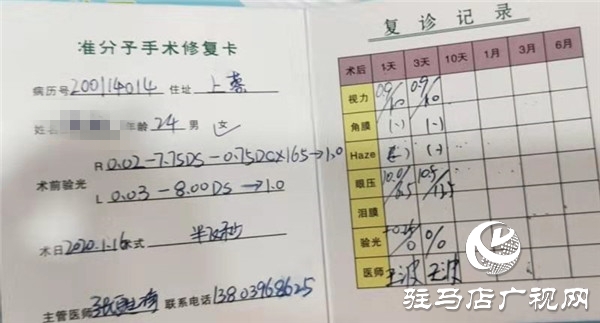 准分子手术修复卡
病历号 200114014 住址 上蔡
姓名 年龄 24 男 女
R 0.02 -7.75DS -0.75DC×165→1.0
术前验光
L 0.03 -8.00DS→1.0
术日 2020.1.16 术式 半飞秒
主管医师 联系电话 13803968625
复诊记录
术后 1天 3天 10天 1月 3月 6月
视力 0.9/1.0 0.9/1.0
角膜 (-) (-)
Haze (-) (-)
眼压
泪膜
验光 +0.25/0 0/0
医师 王波 王波
驻马店广视网